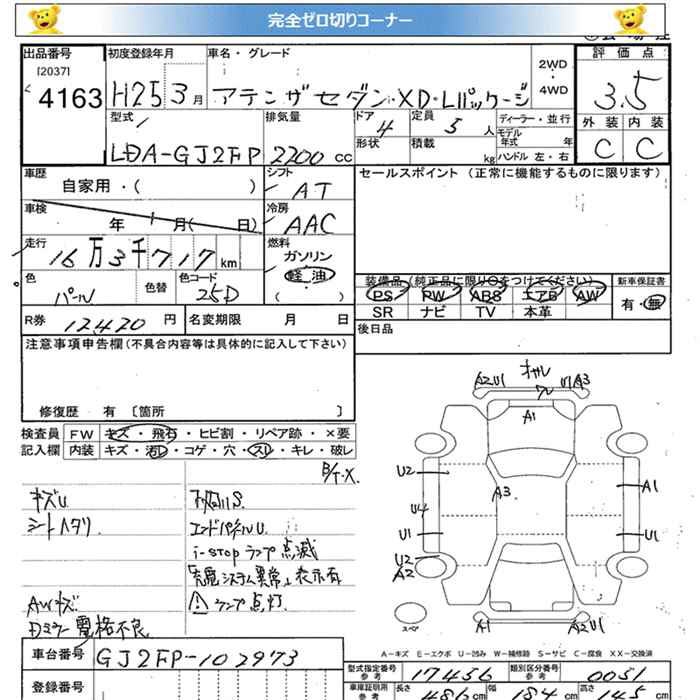 完全ゼロ切りコーナー
出品番号
[2037]
4163
初度登録年月
H25 3 月
車名・グレード
アテンザセダン・XD・Lパッケージ
2WD
・
4WD
評価点
3.5
外装 内装
C C
型式
LDA-GJ2FP
排気量
2200 cc
ドア
4
形状
定員
5 人
積載
kg
ディーラー・並行
モデル年式 年
ハンドル 左・右
車歴
自家用・( )
シフト
AT
セールスポイント (正常に機能するものに限ります)
車検
年 月( 日)
冷房
AAC
走行
16万3千717 km
燃料
ガソリン
軽油
( )
色
パール
色替
色コード
25D
装備品 (純正品に限り○をつけてください)
PS PW ABS エアB AW
SR ナビ TV 本革
新車保証書
有・無
R券 12420 円
名変期限 月 日
後日品
注意事項申告欄(不具合内容等は具体的に記入して下さい)
修復歴 有 [箇所 ]
検査員記入欄
FW キズ・飛石・ヒビ割・リペア跡・×要
内装 キズ・汚レ・コゲ・穴・スレ・キレ・破レ
キズU
シートヘタリ
AWキズ
Dミラー電格不良
エンドパネルU
i-stopランプ点滅
「充電システム異常」表示有
ランプ点灯
A2U1
U1A3
A1
U2
A3
A1
U4
U1
U1
U2
A2
A1
A2U1
スペア
A-キズ E-エクボ U-凹み W-補修跡 S-サビ C-腐食 XX-交換済
車台番号 GJ2FP-102973
登録番号
型式指定番号
参考
17456
類別区分番号
参考
0051
車庫証明用
参考
長さ 486 cm
幅 184 cm
高さ 145 cm